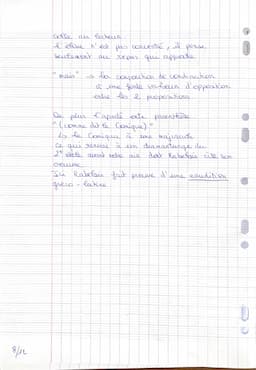 celle au labeur.
L'élève n'est pas concentré, il pense
seulement au repas qui approche
"mais" → la conjonction de coordination
a une forte valeur d'opposition
entre les 2 propositions
De plus l'ajout entre parenthèse
"(comme dit le Comique)"
Le Comique à une majuscule
ce qui renvoie à un dramaturge du
2e siècle avant notre ère dont Rabelais cite son
oeuvre.
Ici Rabelais fait preuve d'une érudition
gréco-latine
8/12